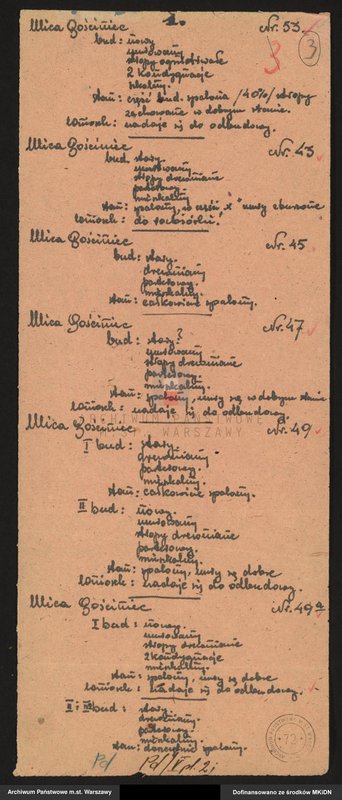 1.
Ulica Gościniec Nr. 53
3
3
bud: nowy
murowany
stropy ogniotrwałe
2 kondygnacje
mkalny.
stan: część bud. spalona /40%/ stropy
zachowane w dobrym stanie.
wniosek: nadaje się do odbudowy.
Ulica Gościniec Nr. 43
bud. stary.
murowany
stropy drewniane
parterowy
mieszkalny
stan: spalony, w części mury zburzone
wniosek: do rozbiórki.
Ulica Gościniec Nr 45
bud: stary.
drewniany
parterowy.
mieszkalny.
stan: całkowicie spalony.
Ulica Gościniec Nr. 47
bud: stary?
murowany
stropy drewniane
parterowy
mieszkalny.
stan: spalony, mury są w dobrym stanie
wniosek: nadaje się do odbudowy.
ARCHIWUM PAŃSTWOWE
WARSZAWY
Ulica Gościniec Nr. 49
I bud: stary.
drewniany
parterowy.
mieszkalny.
stan: całkowicie spalony.
II bud: nowy.
murowany
stropy drewniane
parterowy.
mieszkalny.
stan: spalony, mury są dobre
wniosek: nadaje się do odbudowy.
Ulica Gościniec Nr. 49a
I bud: nowy.
murowany
stropy drewniane
2 kondygnacje
mieszkalny.
stan: spalony, mury są dobre
wniosek: nadaje się do odbudowy.
II i III bud: stary.
drewniany
parterowy.
mieszkalny.
stan: doszczętnie spalony.
72
Archiwum Państwowe m.st. Warszawy Dofinansowano ze środków MKiDN